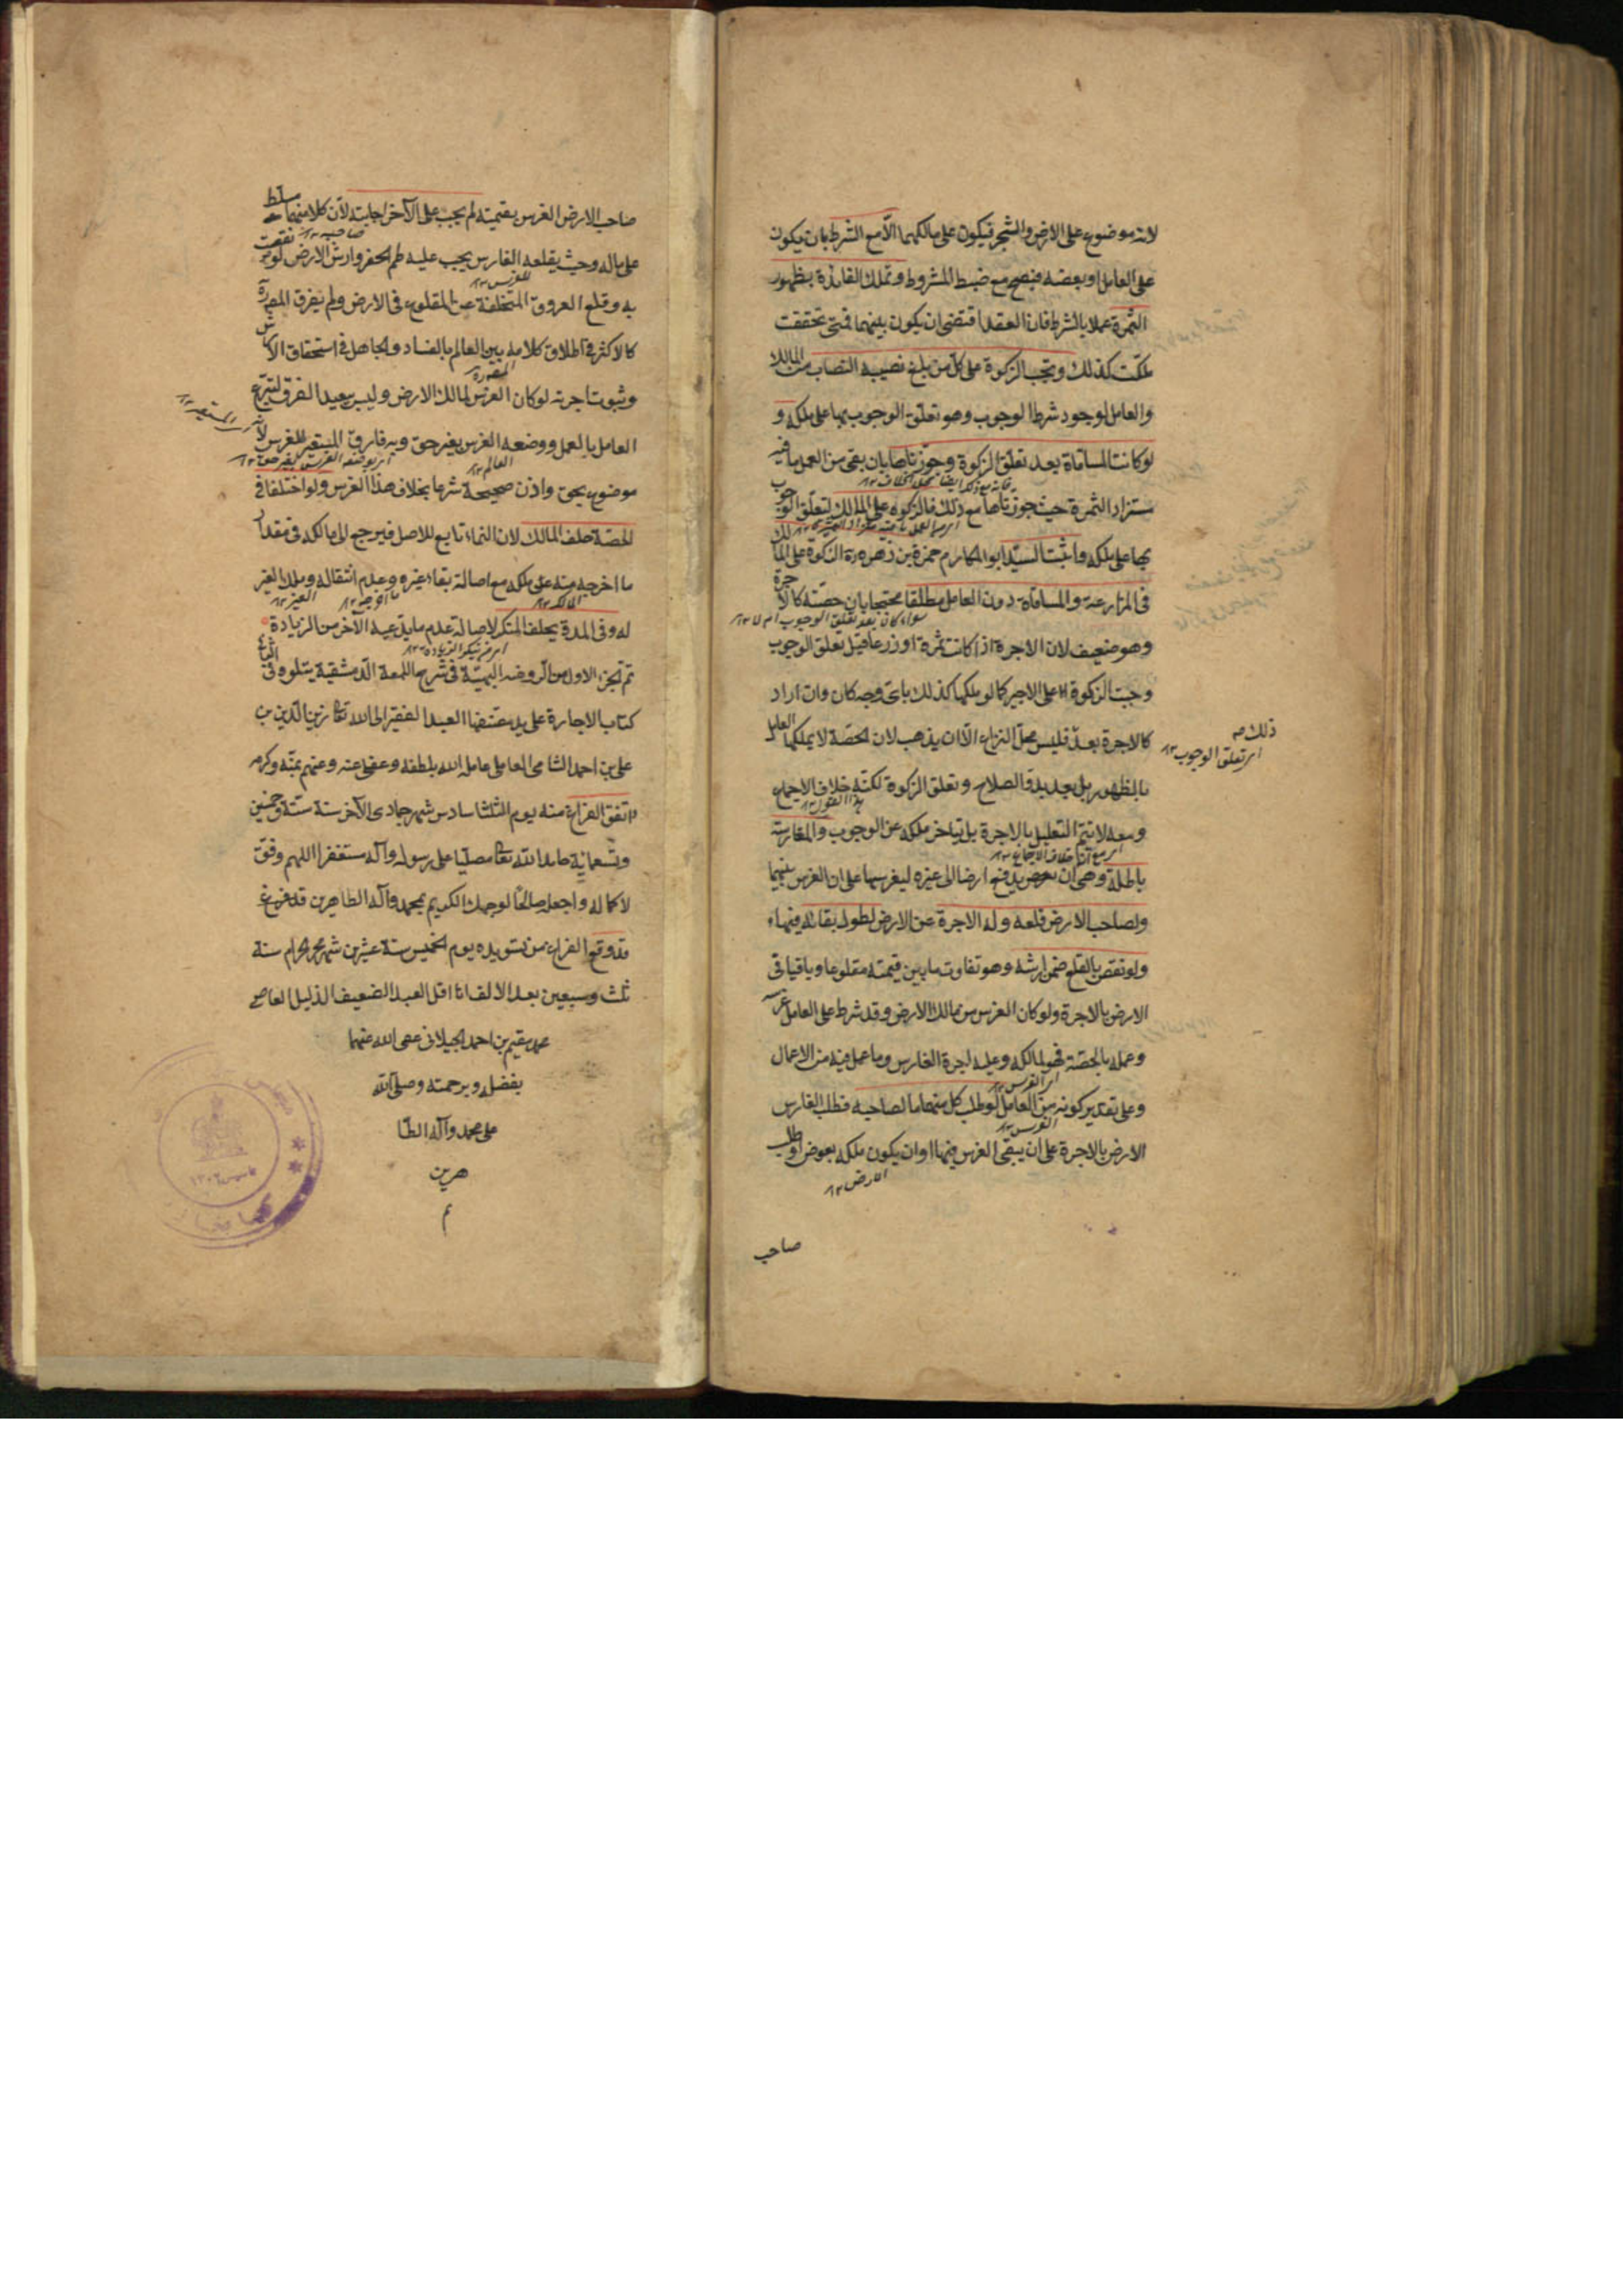 لانه موضوع على الارض والشجر فيكون على مالكهما الا مع الشرط بان يكون
على العامل او بعضه فيصح مع ضبط المشروط وتملك الفائدة بظهور
الثمرة عملا بالشرط فان العقد اقتضى ان يكون بينهما فمتى تحققت
ملكت كذلك وتجب الزكوة على كل من بلغ نصيبه النصاب من المالك
والعامل لوجود شرط الوجوب وهو تعلق الوجوب بها على ملكه و
لو كانت المساقاة بعد تعلق الزكوة وجوزناها بان بقى من العمل ما فيه
مستزاد الثمرة حيث جوزناها مع ذلك فالزكوة على المالك لتعلق الوجوب
بها على ملكه واثبت السيد ابو المكارم حمزة بن زهرة الزكوة على المالك
فى المزارعة والمساقاة دون العامل مطلقا محتجا بان حصته كالاجرة
سواء كان بعد تعلق الوجوب ام لا ١٢
وهو ضعيف لان الاجرة اذا كانت ثمرة او زرعا قبل تعلق الوجوب
وجبت الزكوة على الاجير كما لو ملكها كذلك باى وجه كان وان اراد
كالاجرة بعد ذلك فليس محل النزاع الا ان يذهب لان الحصة لا يملكها العامل
اى تعلق الوجوب ١٢
بالظهور بل بعد بدو الصلاح وتعلق الزكوة لكنه خلاف الاجماع
هذا القول ١٢
ومعه لا يتم التعليل بالاجرة بل بتاخر ملكه عن الوجوب والمغارسة
باطلة وهى ان يدفع ارضا الى غيره ليغرسها على ان الغرس بينهما
ولصاحب الارض قلعه وله الاجرة عن الارض لطول بقائه فيها
ولو نقص بالقلع ضمن ارشه وهو تفاوت ما بين قيمته مقلوعا وباقيا فى
الارض بالاجرة ولو كان الغرس من مالك الارض وقد شرط على العامل غرسه
وعمله بالحصة فهو لمالكه وعليه اجرة الغارس وما عمل فيه من الاعمال
اى الغرس ١٢
وعلى تقدير كونه من العامل لو طلب كل منهما ما لصاحبه فطلب الغارس
الغرس ١٢
الارض بالاجرة على ان يبقى الغرس فيها او ان يكون ملكه بعوض او طلب
الارض ١٢
صاحب
صاحب الارض الغرس بقيمته لم يجب على الآخر اجابته لان كلا منهما مسلط
صاحبه ١٢
على ماله وحيث يقلعه الغارس يجب عليه طم الحفر وارش الارض لو نقصت
للغرس ١٢
به وقلع العروق المتخلفة عن المقلوع فى الارض ولم يفرق المصنف
كالاكثر فى اطلاق كلامه بين العالم بالفساد والجاهل فى استحقاق الارش
وثبوت اجرته لو كان الغرس لمالك الارض وليس ببعيد الفرق لتبرع
المستعير ١٢
العامل بالعمل ووضعه الغرس بغير حق وبه فارق المستعير للغرس لانه
العالم ١٢
موضوع بحق واذن صحيحة شرعا بخلاف هذا الغرس ولو اختلفا فى
الحصة حلف المالك لان النماء تابع للاصل فيرجع الى مالكه فى مقدار
ما اخرجه منه عن ملكه مع اصالة بقاء غيره وعدم انتقاله وملك الغير
المالك ١٢ ما اخرجه ١٢ الغير ١٢
له وفى المدة يحلف المنكر لاصالة عدم ما يدعيه الآخر من الزيادة
اى منكر الزيادة ١٢
تم الجزء الاول من الروضة البهية فى شرح اللمعة الدمشقية يتلوه فى الثانى
كتاب الاجارة على يد مصنفها العبد الفقير الى الله تعالى زين الدين بن
على بن احمد الشامى العاملى عامله الله بلطفه وعفى عنه وعنهم بمنه وكرمه
واتفق الفراغ منه يوم الثلثا سادس شهر جمادى الآخر سنة ستة وخمسين
وتسعمائة حامدا لله تعالى مصليا على رسوله وآله مستغفرا اللهم وفق
لاكماله واجعله صالحا لوجهك الكريم بمحمد وآله الطاهرين قد فرغ
قد وقع الفراغ من تسويده يوم الخميس ستة عشرين شهر محرم الحرام سنة
ثلث وسبعين بعد الالف انا اقل العبد الضعيف الذليل العاصى
محمد مقيم بن احمد الجيلانى عفى الله عنهما
بفضله وبرحمته وصلى الله
على محمد وآله الطا
هرين
م